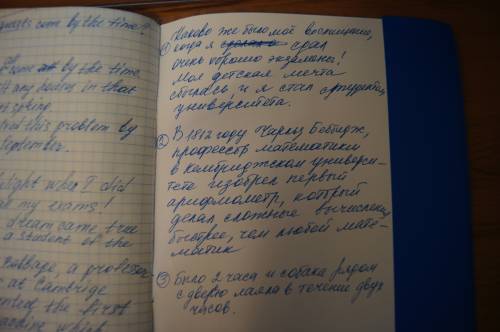 guages come by the time?
I came by the time
at any hour in that
speking
that this problem by
September.
delight when I did
all my exams!
dream came true
a student of the
Babbage, a professor
at Cambridge
invented the first
machine which
① Каково же было моё восхищение,
когда я сделал сдал
очень хорошо экзамены!
Моя детская мечта
сбылась и я стал студентом
университета.
② В 1812 году Чарльз Бэббидж,
профессор математики
в кембриджском универси-
тете изобрёл первый
арифмометр, который
делал сложные вычисления
быстрее, чем любой мате-
матик
③ Было 2 часа и собака рядом
с дверью лаяла в течение двух
часов.